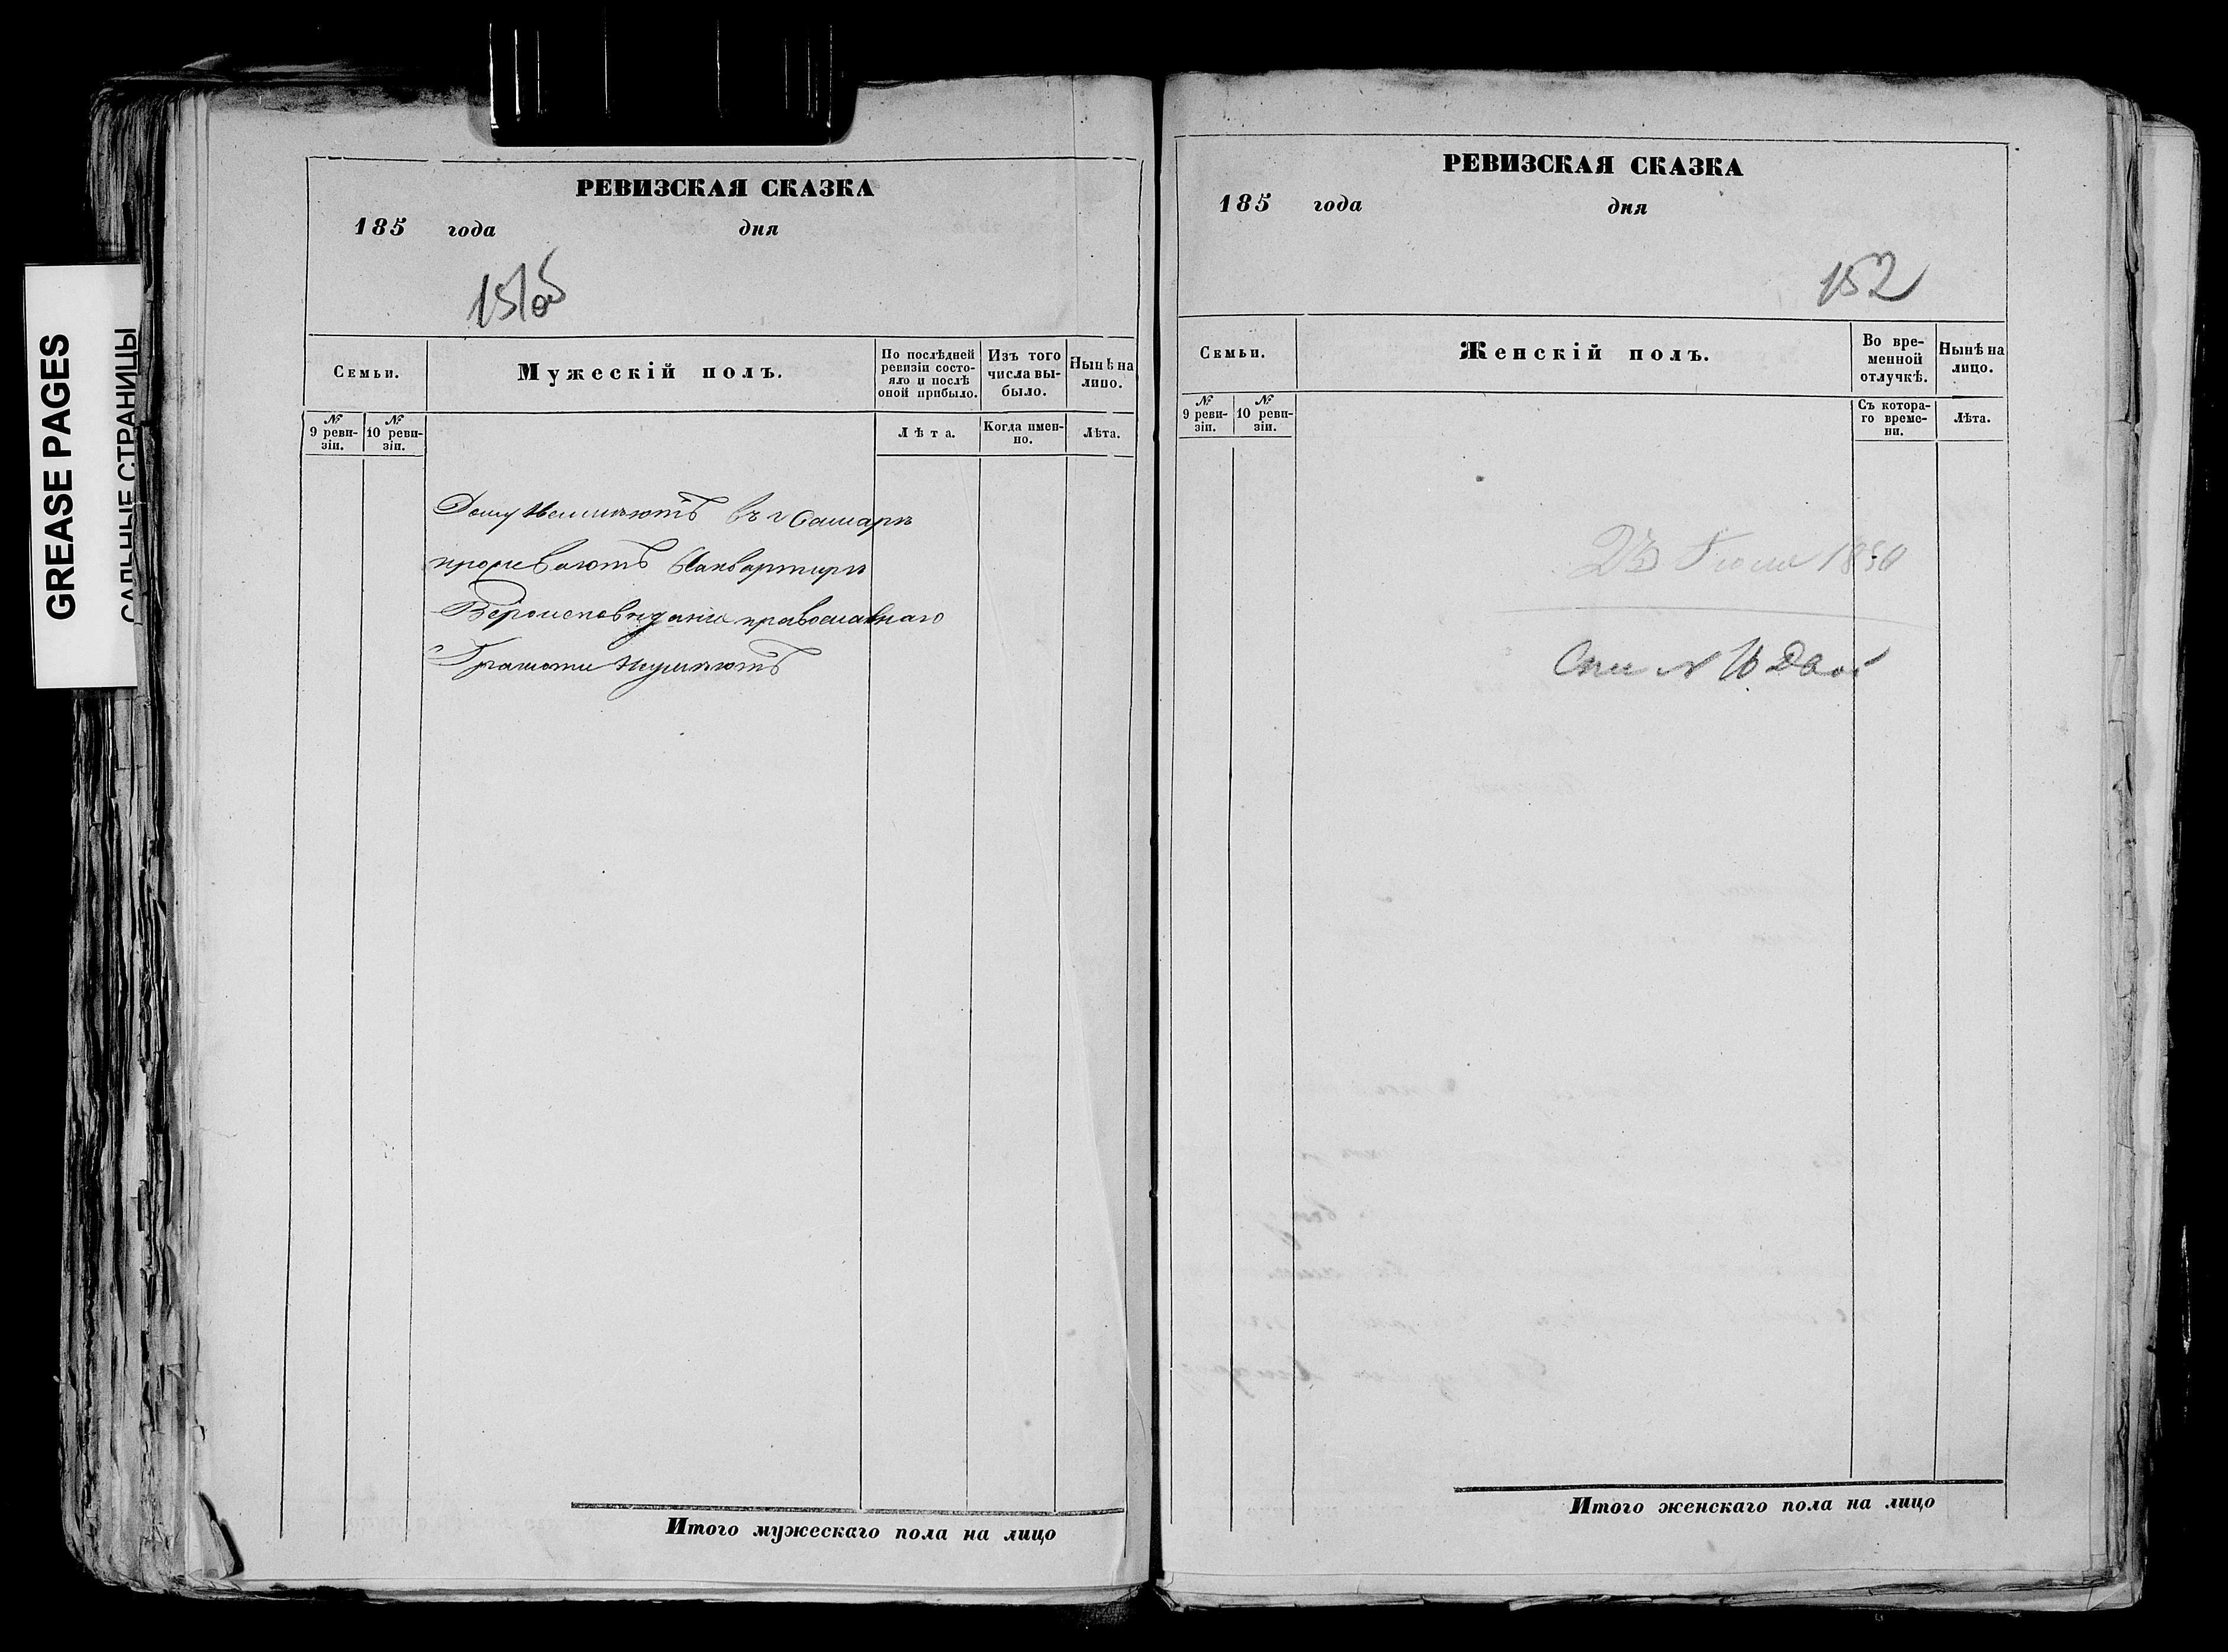 GREASE PAGES
САЛЬНЫЕ СТРАНИЦЫ
РЕВИЗСКАЯ СКАЗКА
185 года дня
151об
Семьи.
Мужескій полъ.
По послѣдней ревизіи состояло и послѣ оной прибыло.
Изъ того числа выбыло.
Нынѣ на лицо.
№ 9 ревизіи.
№ 10 ревизіи.
Лѣта.
Когда именно.
Лѣта.
Дому Неимѣютъ въ г Самарѣ
проживаютъ Наквартирѣ
Вѣроисповѣданія православнаго
Грамоти Неумѣютъ
Итого мужескаго пола на лицо
РЕВИЗСКАЯ СКАЗКА
185 года дня
152
Семьи.
Женскій полъ.
Во временной отлучкѣ.
Нынѣ на лицо.
№ 9 ревизіи.
№ 10 ревизіи.
Съ котораго времени.
Лѣта.
23 Іюля 185
Итого женскаго пола на лицо